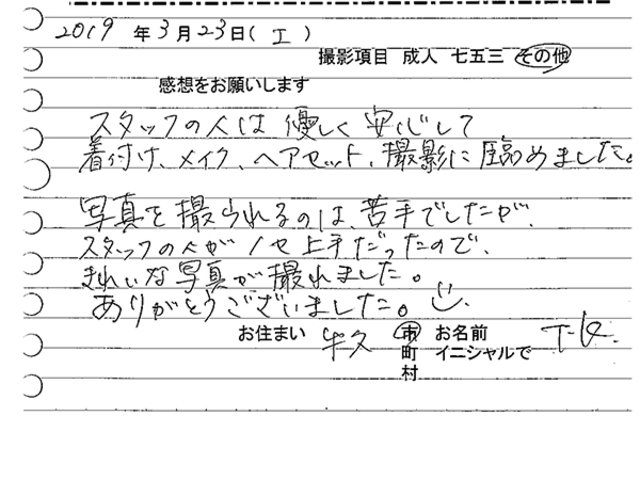 2019 年 3 月 23 日 ( 土 )
撮影項目 成人 七五三 その他
感想をお願いします
スタッフの人は優しく安心して
着付け、メイク、ヘアセット、撮影に臨めました。
写真を撮られるのは、苦手でしたが、
スタッフの人が 上手だったので、
きれいな写真が撮れました。
ありがとうございました。
お住まい 牛久 市 お名前 T.K.
町 イニシャルで
村